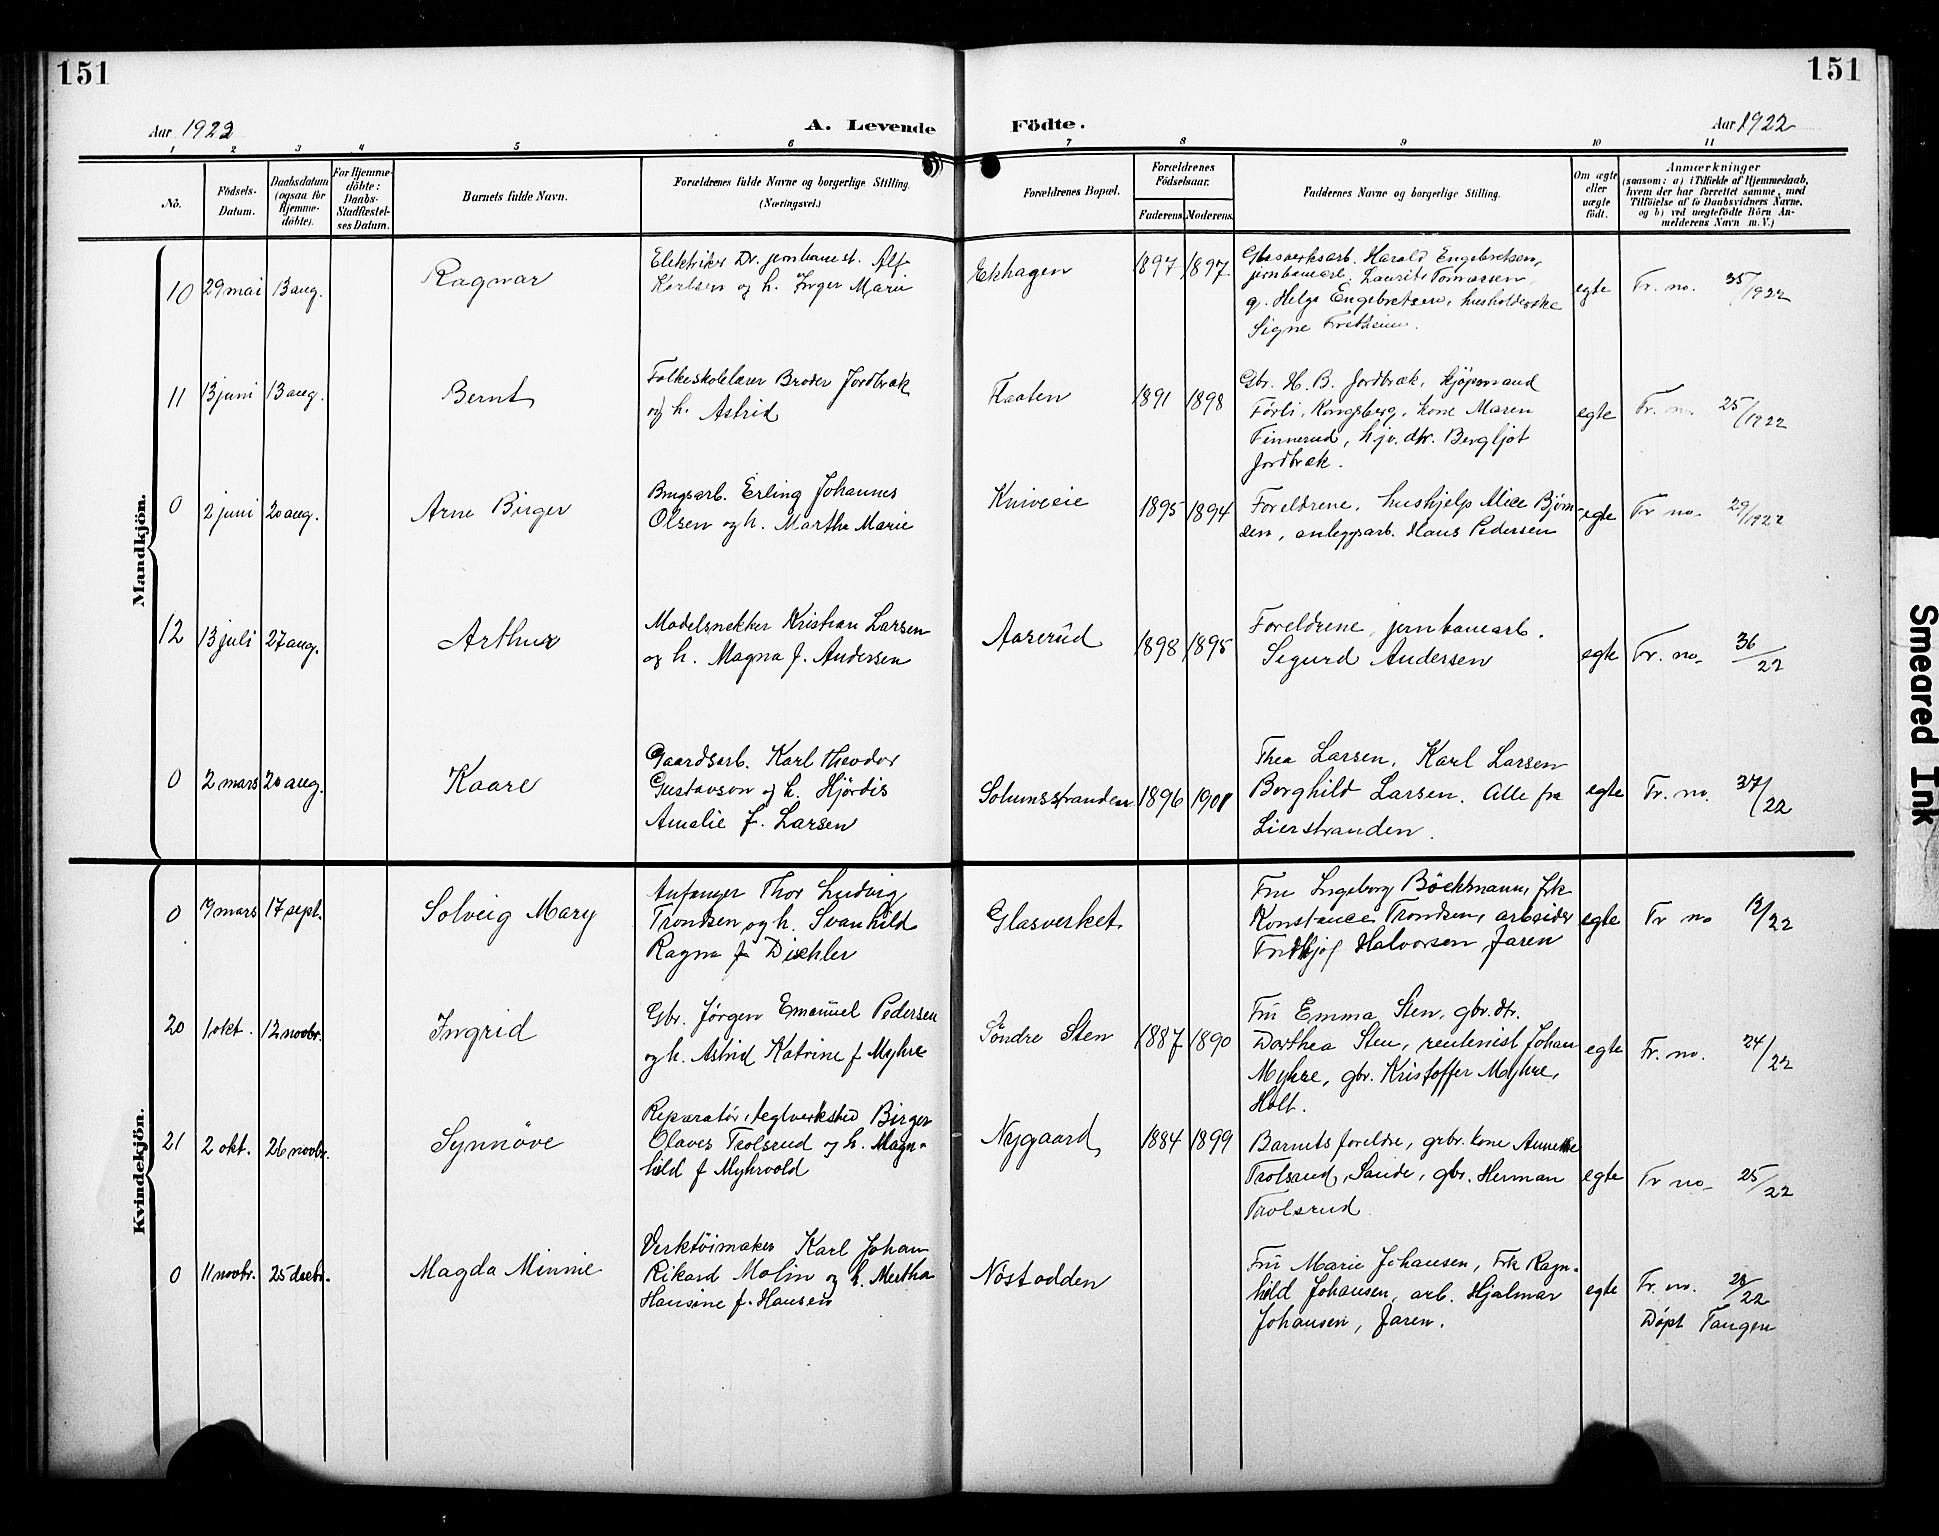 151
151
Aar 1922
A. Levende
Födte.
Aar 1922
1 2 3 4 5 6 7 8 9 10 11
No.
Födsels-
Datum.
Daabsdatum
(ogsaa for
Hjemme-
döbte).
For Hjemme-
döbte:
Daabs-
Stadfæstel-
ses Datum.
Barnets fulde Navn.
Forældrenes fulde Navne og borgerlige Stilling.
(Næringsvei.)
Forældrenes Bopæl.
Forældrenes
Födselsaar.
Faderens.
Moderens.
Faddernes Navne og borgerlige Stilling.
Om ægte
eller
uægte
födt.
Anmærkninger
(saasom: a) i Tilfælde af Hjemmedaab,
hvem der har forrettet samme, med
Tilföielse af to Daabsvidners Navne,
og b) ved uægtefödte Börn An-
melderens Navn m. V.)
Mandkjön.
10
29 mai
13 aug.
Ragnar
Elektriker Dr. jernbanest. Alf
Karlsen og h. Inger Marie
Ekhagen
1897
1897
Glasverksarb. Harald Engebretsen,
jernbanearb. Laurits Tomassen,
g. Helga Engebretsen, husholderske
Signe Fretheim.
egte
Fr. no. 35/1922
11
13 juni
13 aug.
Bernt
Folkeskolelærer Broder Jordbræk
og h. Astrid
Flaaten
1891
1898
Gbr. H. B. Jordbræk, kjøpmand
Førli, Kongsberg, kone Maren
Finnerud, hjv. dtr. Bergljot
Jordbræk.
egte
Fr. no. 25/1922
0
2 juni
20 aug.
Arne Birger
Brugsarb. Erling Johannes
Olsen og h. Martha Marie
Kniveie
1895
1894
Foreldrene, hushjelp Alice Bjørn-
sen, anleggsarb. Hans Pedersen
egte
Fr no. 29/1922
12
13 juli
27 aug.
Arthur
Modelsnekker Kristian Larsen
og h. Magna f. Andersen
Aaserud
1898
1895
Foreldrene, jernbanearb.
Sigurd Andersen
egte
Fr. no. 36/22
0
2 mars
20 aug.
Kaare
Gaardsarb. Karl Theodor
Gustavson og h. Hjördis
Amalie f. Larsen
Solumsstranden
1896
1901
Thea Larsen, Karl Larsen
Borghild Larsen. Alle fra
Lierstranden.
egte
Fr. no. 37/22
Kvindekjön.
0
19 mars
17 sept.
Solveig Mary
Anfanger Thor Ludvig
Trondsen og h. Svanhild
Ragna f Dichler
Glasverket
Fru Ingeborg Böckmann, frk
Konstance Trondsen, arbeider
Fridtjof Halvorsen Jaren
egte
Fr no 12/22
20
1 okt.
12 novbr.
Ingrid
Gbr. Jørgen Emanuel Pedersen
og h. Astrid Katrine f Myhre
Söndre Sten
1887
1890
Fru Emma Sten, gbr. dtr.
Dorthea Sten, rentenist Johan
Myhre, gbr. Kristoffer Myhre,
Holt.
egte
Fr. no. 24/22
21
2 okt.
26 novbr.
Synnöve
Reparatör, teglverksted Birger
Olaves Trolsrud og h. Magn-
hild f Myhrvold
Nygaard
1884
1899
Barnets foreldre, grbr. kone Annette
Trolsrud, Sande, gbr. Herman
Trolsrud
egte
Fr no. 25/22
0
11 novbr.
25 decbr.
Magda Minnie
Verktöimaker Karl Johan
Rikard Molin og h. Mertha
Hansine f. Hansen
Nöstodden
Fru Marie Johansen, Frk Ragn-
hild Johansen, arb. Hjalmar
Johansen, Jaren.
egte
Fr. no. 28/22
Döpt Tangen
Smeared Ink